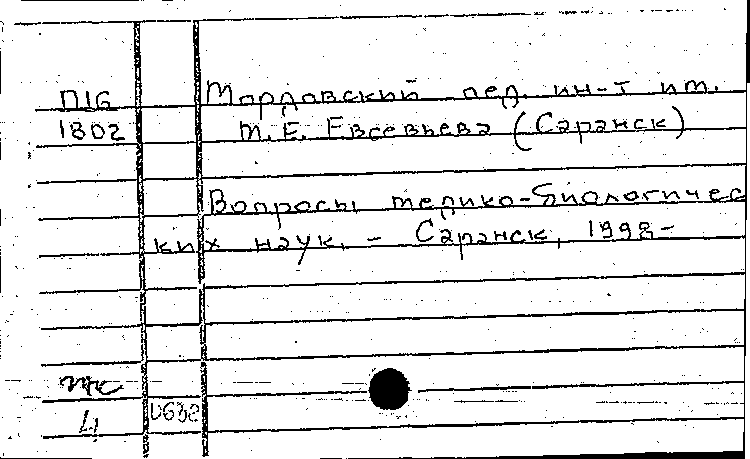 П16 Мордовский пед. ин-т им.
1802 М.Е. Евсевьева (Саранск)
Вопросы медико-биологичес
ких наук. - Саранск, 1998-
4 0638